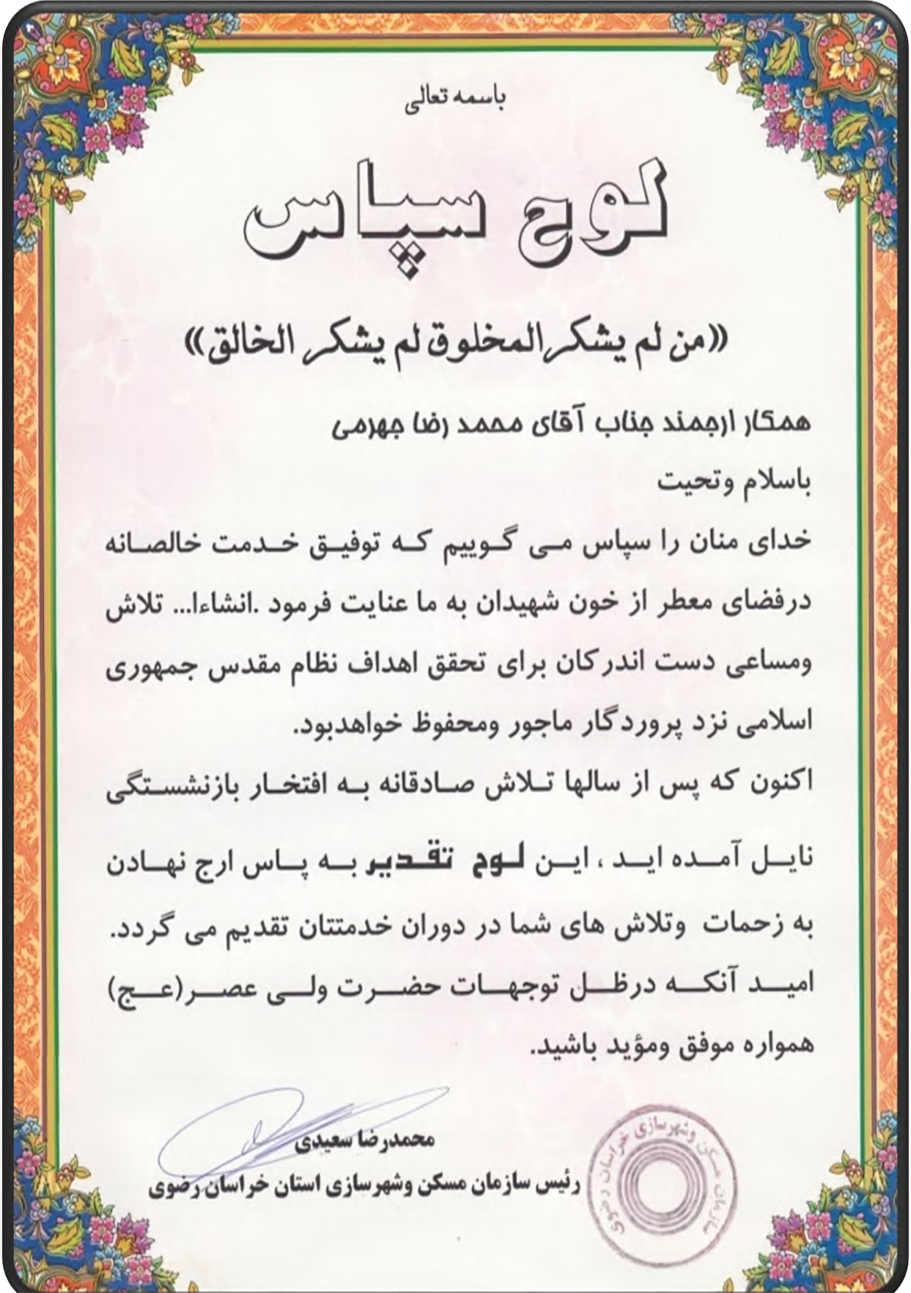 باسمه تعالی
لوح سپاس
«من لم یشکر المخلوق لم یشکر الخالق»
همکار ارجمند جناب آقای محمد رضا جهرمی
باسلام وتحیت
خدای منان را سپاس می گوییم که توفیق خدمت خالصانه
درفضای معطر از خون شهیدان به ما عنایت فرمود .انشاءا... تلاش
ومساعی دست اندرکان برای تحقق اهداف نظام مقدس جمهوری
اسلامی نزد پروردگار ماجور ومحفوظ خواهدبود.
اکنون که پس از سالها تلاش صادقانه به افتخار بازنشستگی
نایل آمده اید ، این لوح تقدیر به پاس ارج نهادن
به زحمات وتلاش های شما در دوران خدمتتان تقدیم می گردد.
امید آنکه درظل توجهات حضرت ولی عصر(عج)
همواره موفق ومؤید باشید.
محمدرضا سعیدی
رئیس سازمان مسکن وشهرسازی استان خراسان رضوی
سازمان مسکن وشهرسازی خراسان رضوی